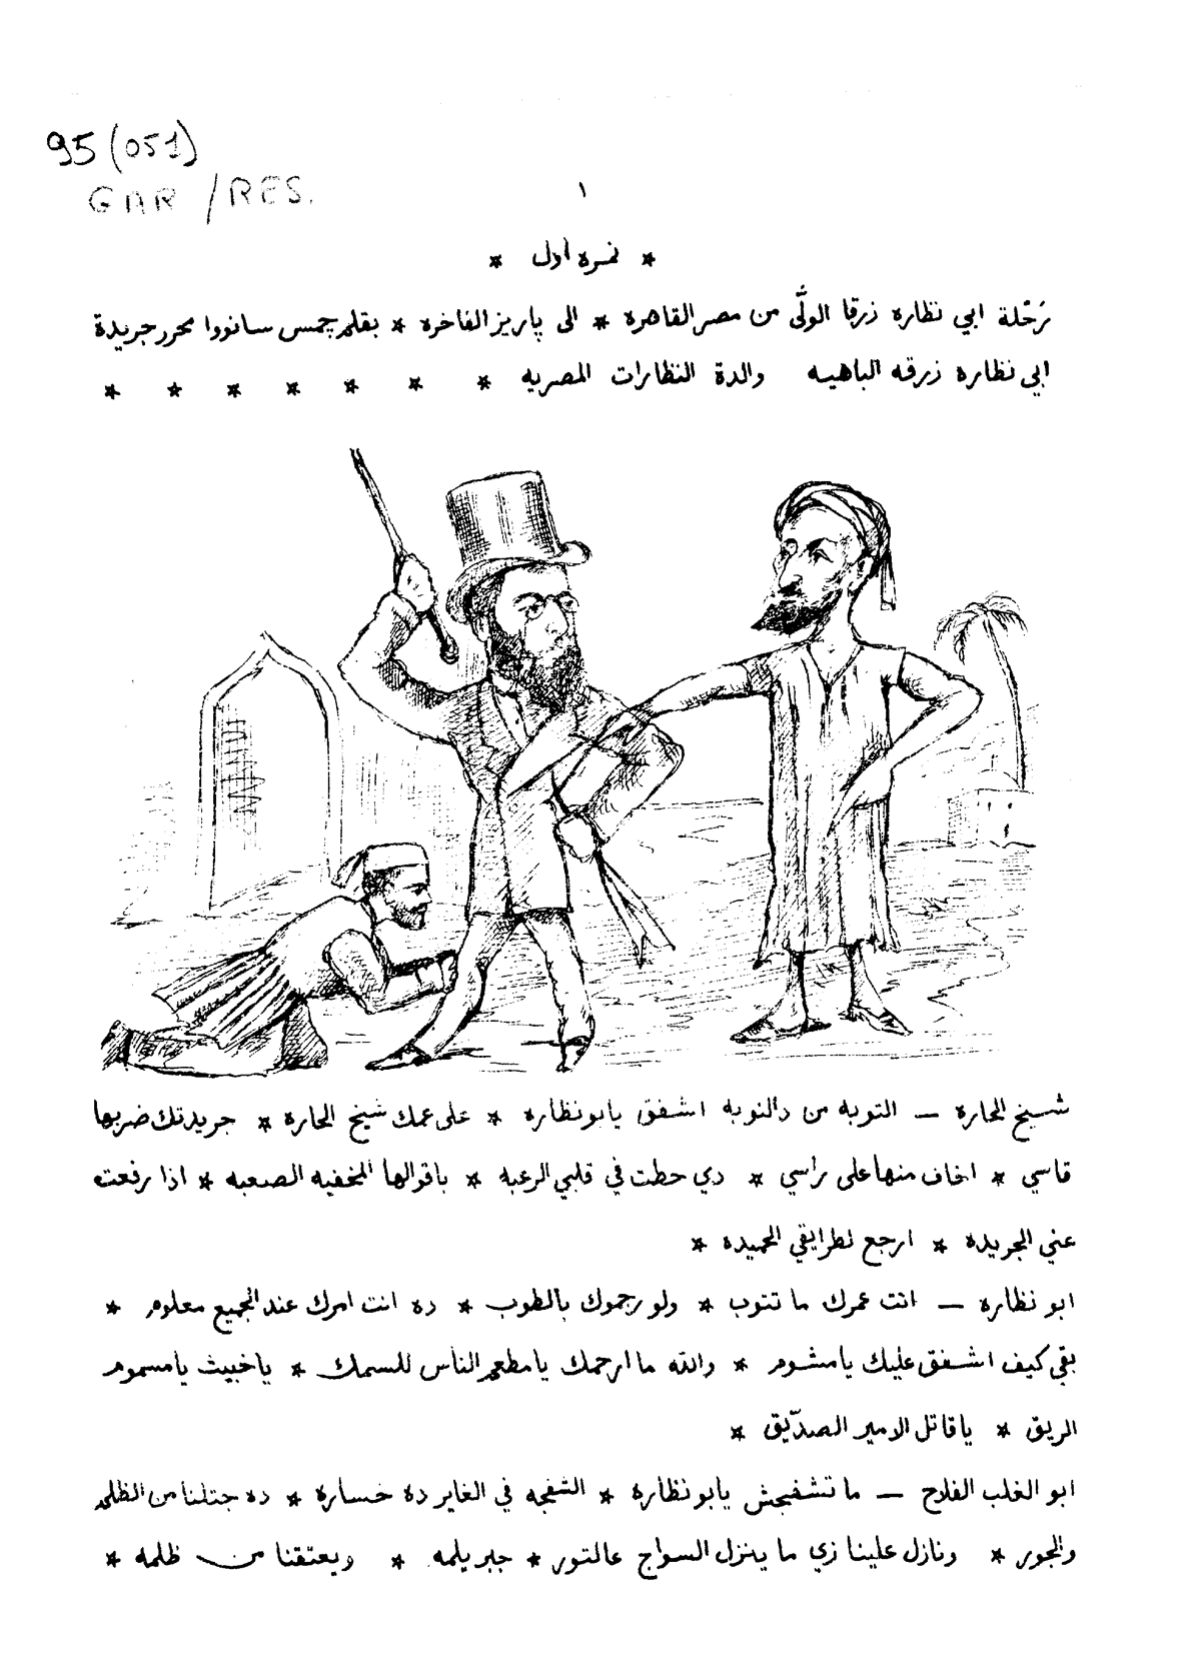 95 (051)
GAR / RES.
١
* نمره اول *
رَحّلة ابي نظاره زرقا الولّي من مصر القاهره * الى پاريز الفاخره * بقلم چمس سانووا محرر جريدة
ابي نظاره زرقه الباهيه والدة النظارات المصريه * * * * * * *
شيخ الحاره — التوبه من دالنوبه اشفق يابونظاره * على عمك شيخ الحاره * جريدتك ضربها
قاسي * اخاف منها على راسي * دي حطت في قلبي الرعبه * باقوالها المخفيه الصعبه * اذا رفعت
عني الجريده * ارجع لطرايقي الحميده *
ابو نظاره — انت عمرك ما تتوب * ولو رجموك بالطوب * ده انت امرك عند الجميع معلوم *
بقي كيف اشفق عليك يا مشوم * والله ما ارحمك يا مطعم الناس للسمك * يا خبيث يا مسموم
الريق * يا قاتل الامير الصدّيق *
ابو الغلب الفلاح — ما تشفجش يابو نظاره * الشفجه في الغاير ده خساره * ده جتلنا من الظلم
والجور * ونازل علينا زي ما ينزل السواج عالتور * جبر يلمه * ويعتقنا من ظلمه *